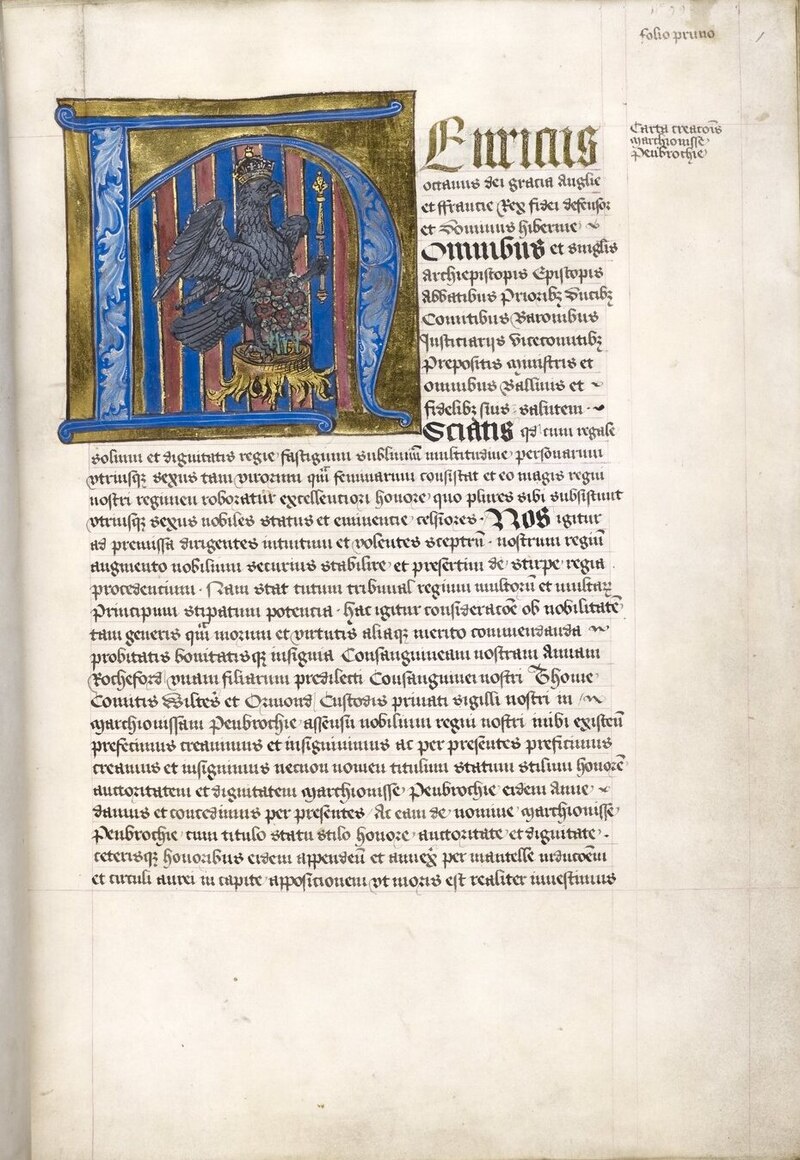 folio primo
Carta creacõis
Marchionisse
Penbrochie
HEnricus
octauus dei gracia Anglie
et ffrancie Rex fidei defensor
et Dominus hibernie
Omnibus et singlis
Archiepiscopis Episcopis
Abbatibus Prioribȝ Ducibȝ
Comitibus Baronibus
Justiciarijs Vicecomitibȝ
Prepositis Ministris et
omnibus Balliuis et
fidelibȝ suis salutem
Sciatis qđ cum regale
solium et dignitatis regie fastigium sublimiū multitudine personarum
vtriusqȝ sexus tam virorum qm̄ feminarum consistat et eo magis regni
nostri regimen roboratur excellentiori honore quo plures sibi subsistunt
vtriusqȝ sexus nobiles status et eminencie celsiores. Nos igitur
ad premissa dirigentes intuitum et volentes sceptrū nostrum regiū
augmento nobilium securius stabilire et presertim de stirpe regia
procedencium. Nam stat tutum tribunal regium multorū et multaꝝ
Principum stipatum potencia hac igitur consideracōe ob nobilitatē
tam generis qm̄ morum et virtutis aliaqȝ merito commendanda
probitatis bonitatisqȝ insignia Consanguineam nostram Annam
Rocheford vnam filiarum predilecti Consanguinei nostri Thome
Comitis Wiltes et Ormond Custodis priuati sigilli nostri in
Marchionissam Penbrochie assensu nobilium regni nostri nobi existeñ
prefecimus creauimus et insigniuimus ac per presentes preficimus
creamus et insignimus necnon nomen titulum statum stilum honorē
auctoritatem et dignitatem Marchionisse Penbrochie eidem Anne
damus et concedimus per presentes Ac eam de nomine Marchionisse
Penbrochie cum titulo statu stilo honore auctoritate et dignitate
ceterisqȝ honoribus eidem appendeñ et annex̃ per mantelle inducōem
et circuli aurei in capite apposicionem vt moris est realiter inuestimus